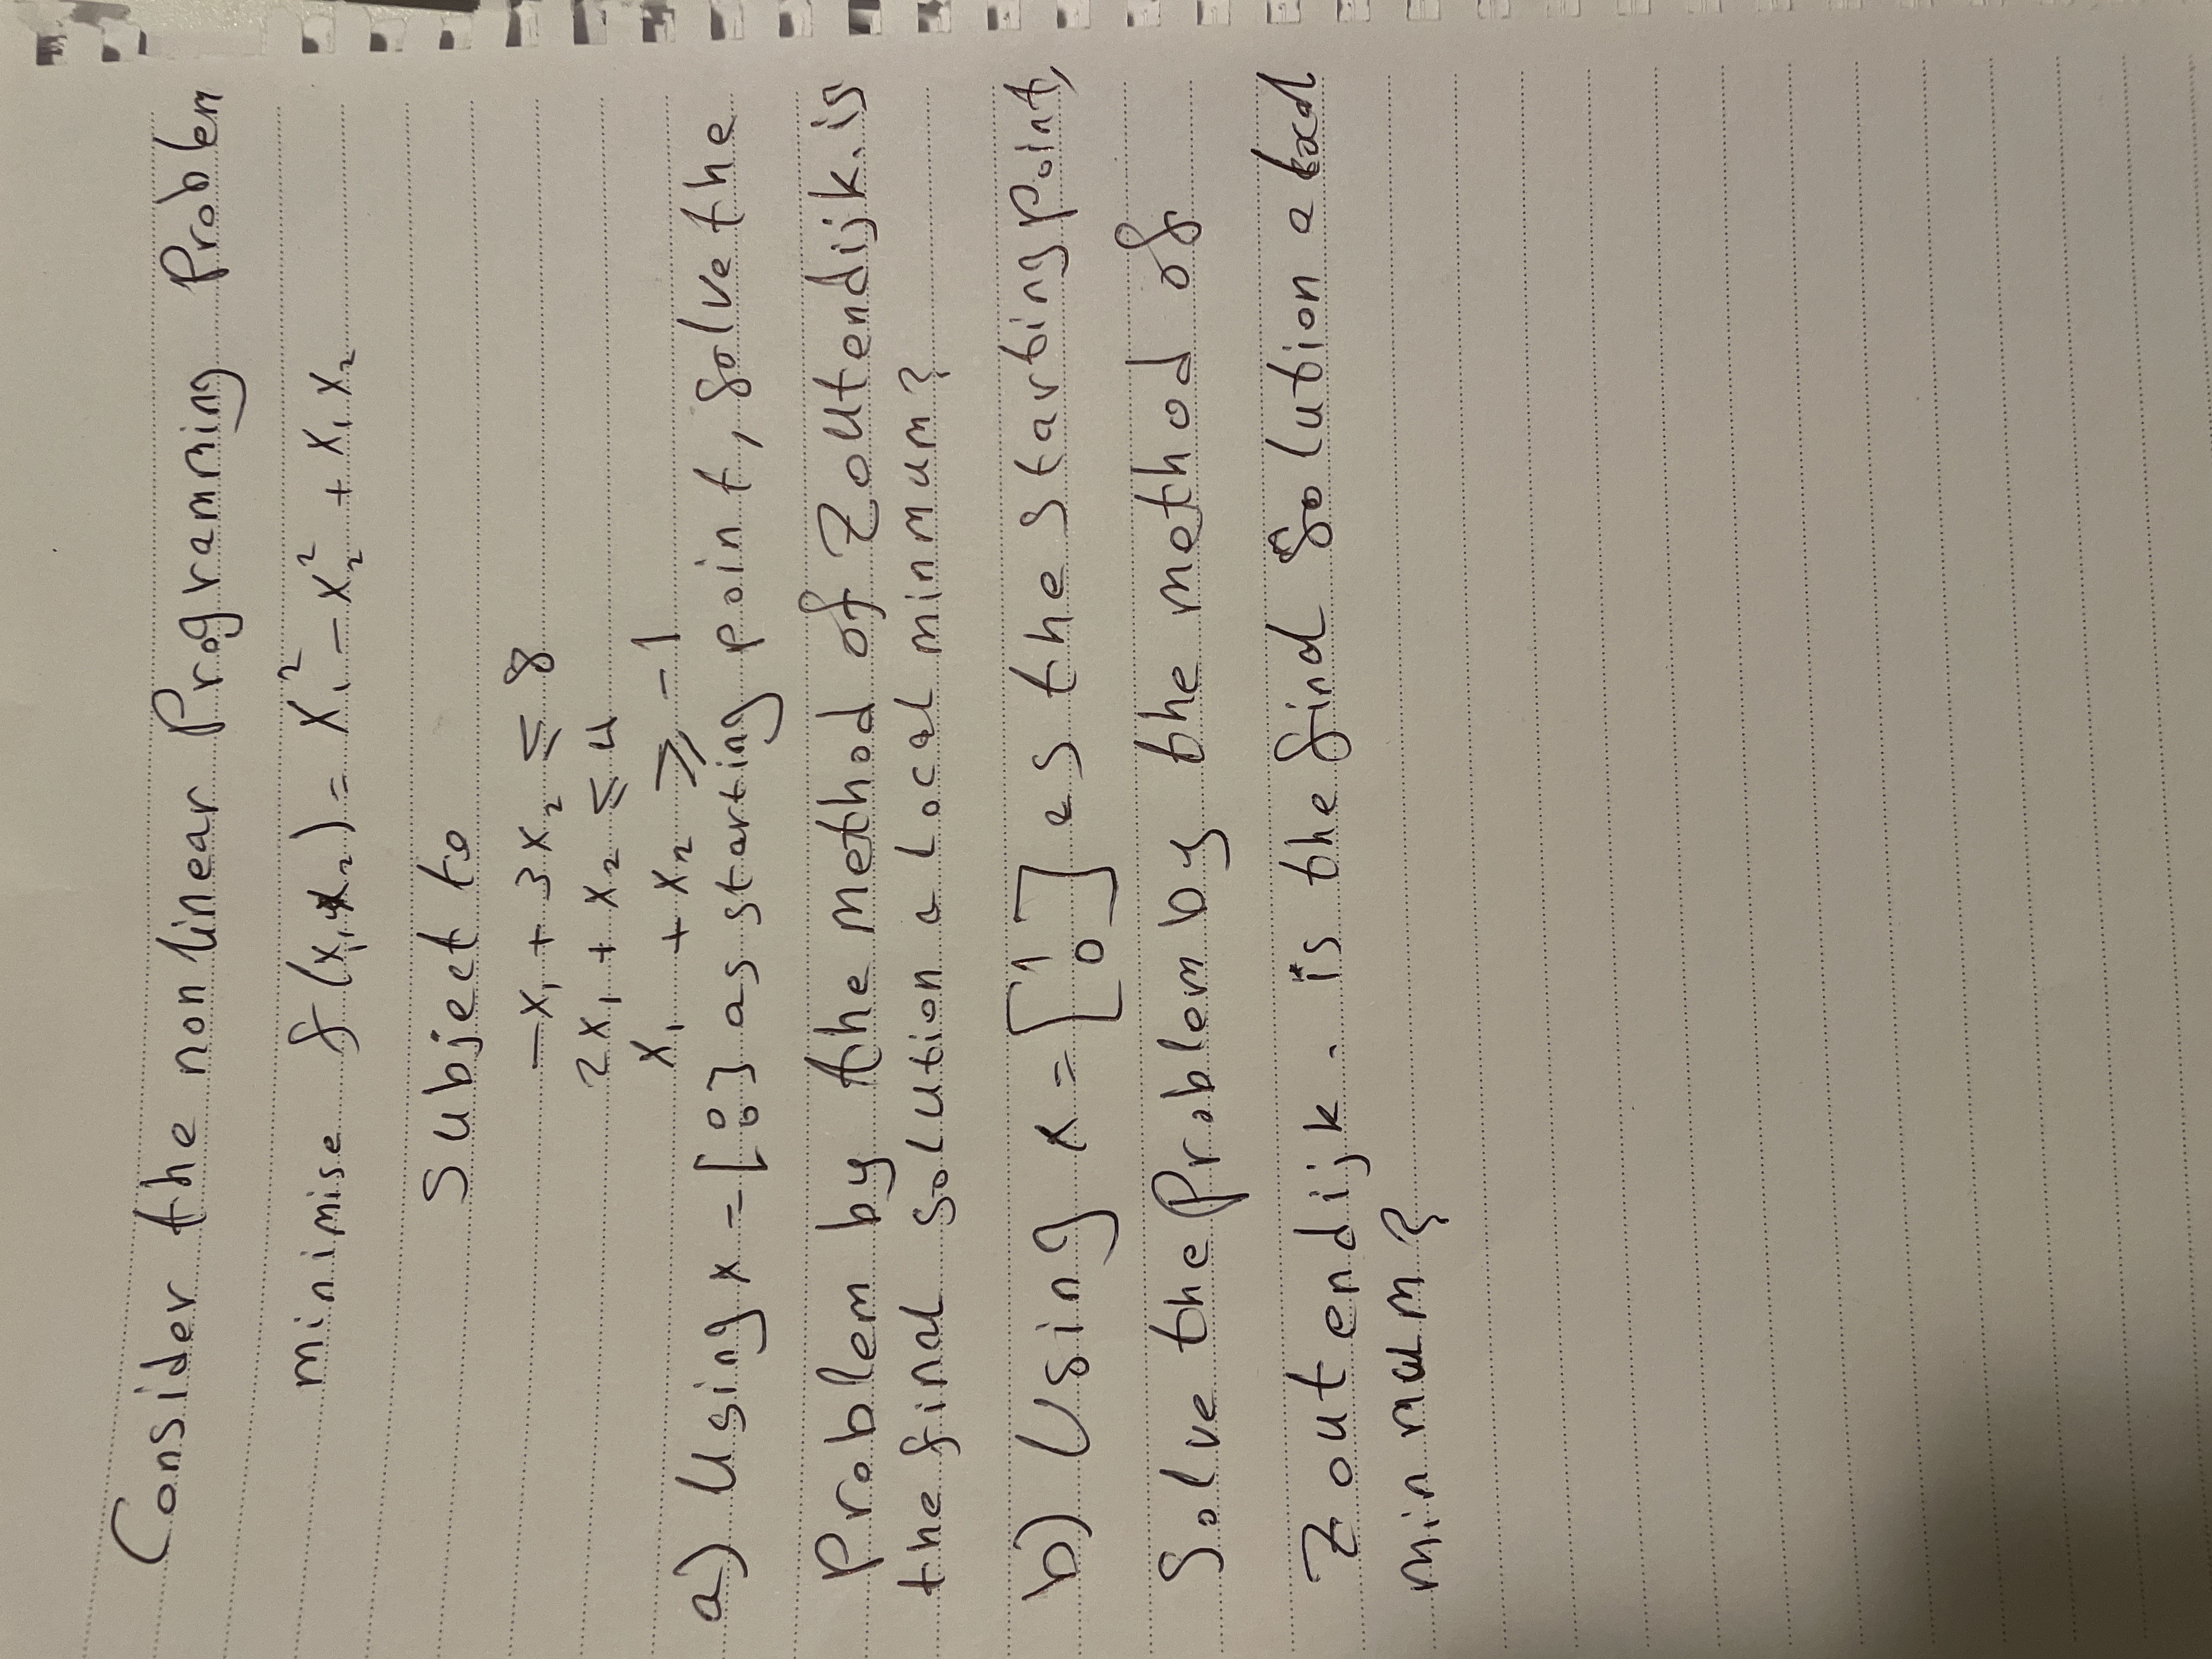 Consider the nonlinear Programming Problem
minimise f(x₁, x₂) = x₁² - x₂² + x₁ x₂
Subject to
-x₁ + 3x₂ ≤ 8
2x₁ + x₂ ≤ 4
x₁ + x₂ ≥ -1
a) Using x = [0 0] as starting point, solve the
Problem by the method of Zoutendijk. is
the final solution a local minmum?
b) Using x = [1 0] as the starting point,
Solve the Problem by the method of
Zoutendijk. is the find Solution a local
minmum?